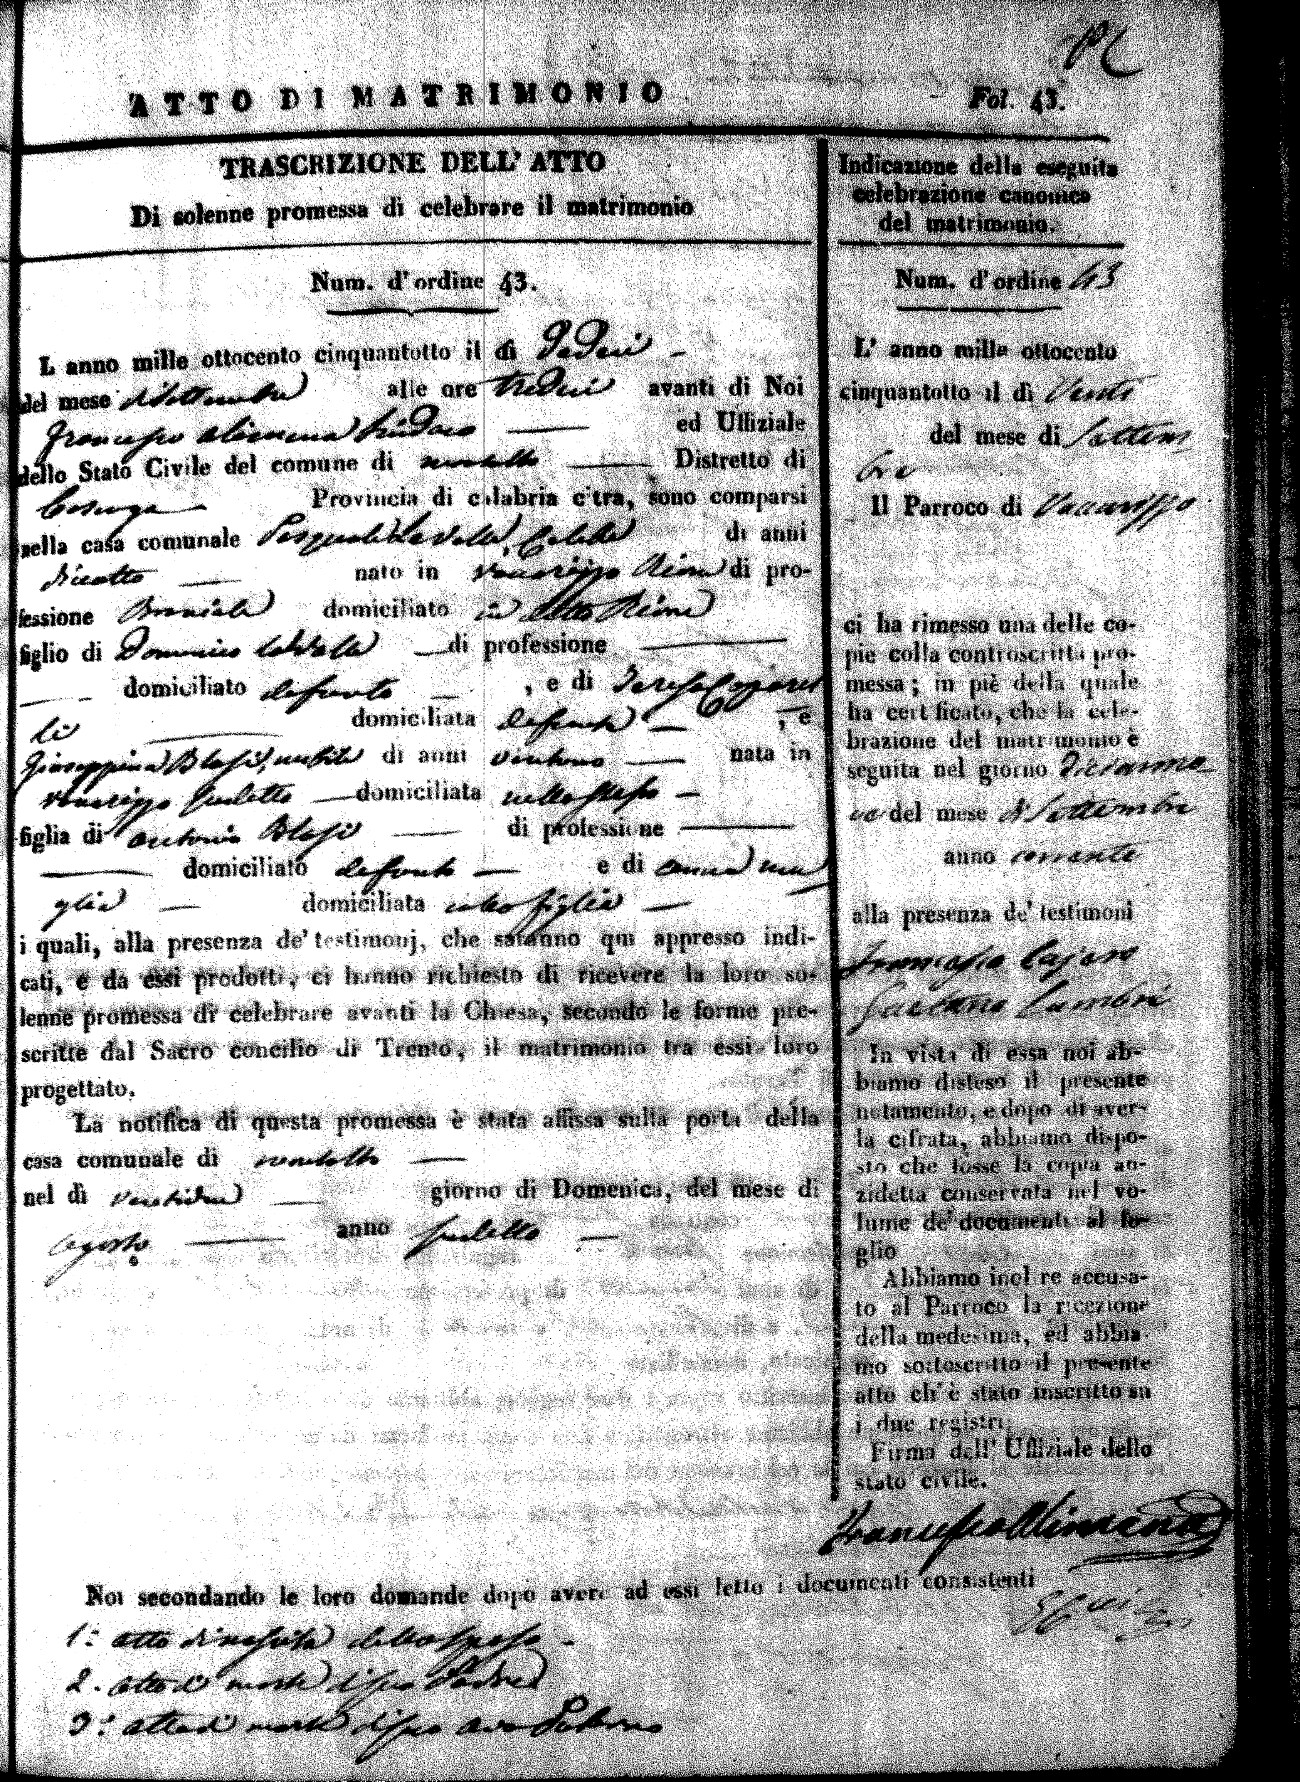 ATTO DI MATRIMONIO
Fol. 43.
TRASCRIZIONE DELL' ATTO
Di solenne promessa di celebrare il matrimonio
Num. d' ordine 43.
L anno mille ottocento cinquantotto il dì Sedeci
del mese di Settembre alle ore tredeci avanti di Noi
Francesco Alimena Sindaco ed Uffiziale
dello Stato Civile del comune di Distretto di
Cosenza Provincia di calabria citra, sono comparsi
nella casa comunale Pasquale La Valle, Celebe di anni
nato in Vaccarizzo Rione di pro-
fessione Bracciale domiciliato in detto Rione
figlio di Domenico La Valle di professione
domiciliato defunto , e di Teresa
domiciliata defunta , e
Giuseppina Blasi, nubile di anni ventuno nata in
Vaccarizzo sudetto domiciliata nello stesso
figlia di Antonio Blasi di professione
domiciliato defunto e di Anna
domiciliata colla figlia
i quali, alla presenza de' testimonj, che saranno qui appresso indi-
cati, e da essi prodotti, ci hanno richiesto di ricevere la loro so-
lenne promessa di celebrare avanti la Chiesa, secondo le forme pre-
scritte dal Sacro concilio di Trento, il matrimonio tra essi loro
progettato.
La notifica di questa promessa è stata affissa sulla porta della
casa comunale di
nel dì ventidue giorno di Domenica, del mese di
Agosto anno sudetto
Noi secondando le loro domande dopo avere ad essi letto i documenti consistenti
1: atto di nascita dello sposo
2. atto di morte di suo Padre
3: atto di morte di suo avo Paterno
Indicazione della eseguita
celebrazione canonica
del matrimonio.
Num. d' ordine 43
L' anno mille ottocento
cinquantotto il dì Venti
del mese di Settem
bre
Il Parroco di Vaccarizzo
ci ha rimesso una delle co-
pie colla controscritta pro-
messa; in piè della quale
ha certificato, che la cele-
brazione del matrimonio è
seguita nel giorno dicianno
ve del mese di Settembre
anno corrente
alla presenza de' testimoni
Francesco Cajaro
Gaetano
In vista di essa noi ab-
biamo disteso il presente
notamento, e dopo di aver-
la cifrata, abbiamo dispo-
sto che fosse la copia an-
zidetta conservata nel vo-
lume de' documenti al fo-
glio
Abbiamo inoltre accusa-
to al Parroco la ricezione
della medesima, ed abbia-
mo sottoscritto il presente
atto ch' è stato inscritto su
i due registri.
Firma dell' Uffiziale dello
stato civile.
Francesco Alimena